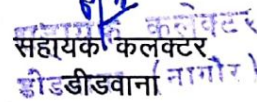 सहायक कलेक्टर
सहायक कलक्टर
डीडवाना (नागौर)